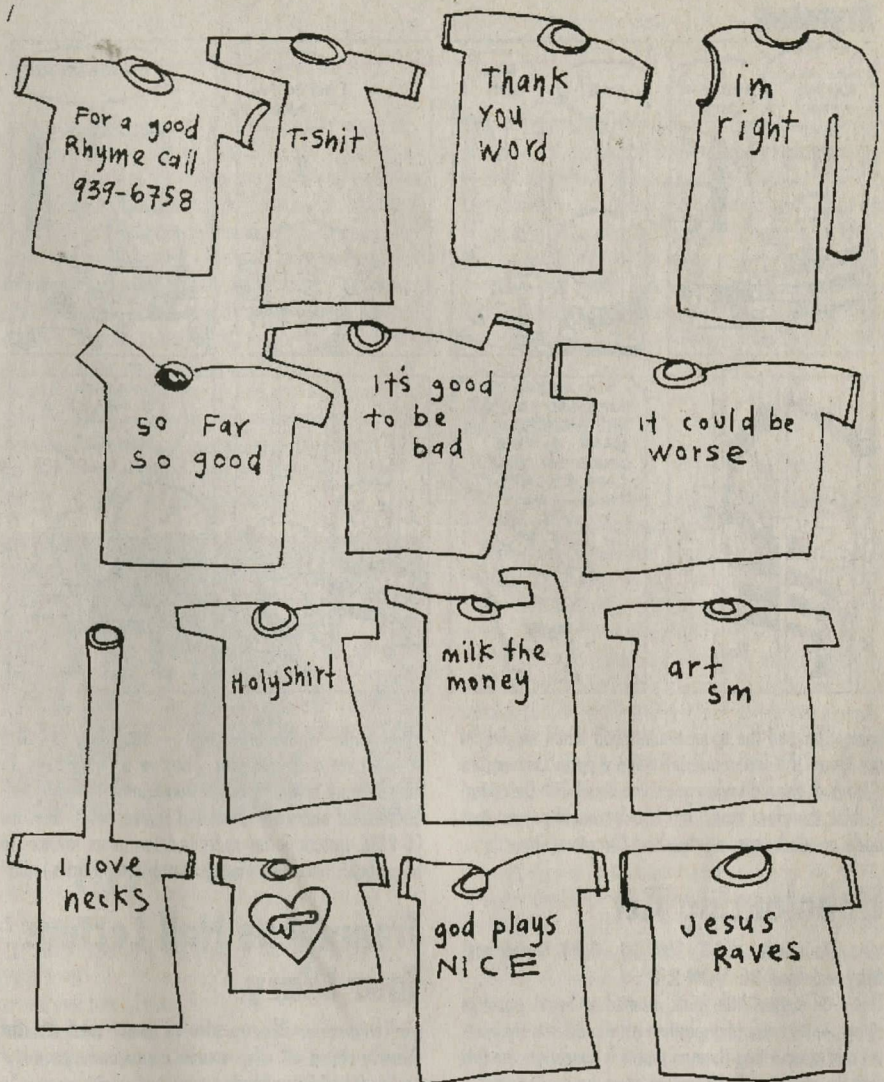 For a good
Rhyme call
939-6758
T-Shit
Thank
You
Word
im
right
so Far
so good
it's good
to be
bad
it could be
worse
HolyShirt
milk the
money
art
sm
I love
necks
god plays
NICE
Jesus
Raves